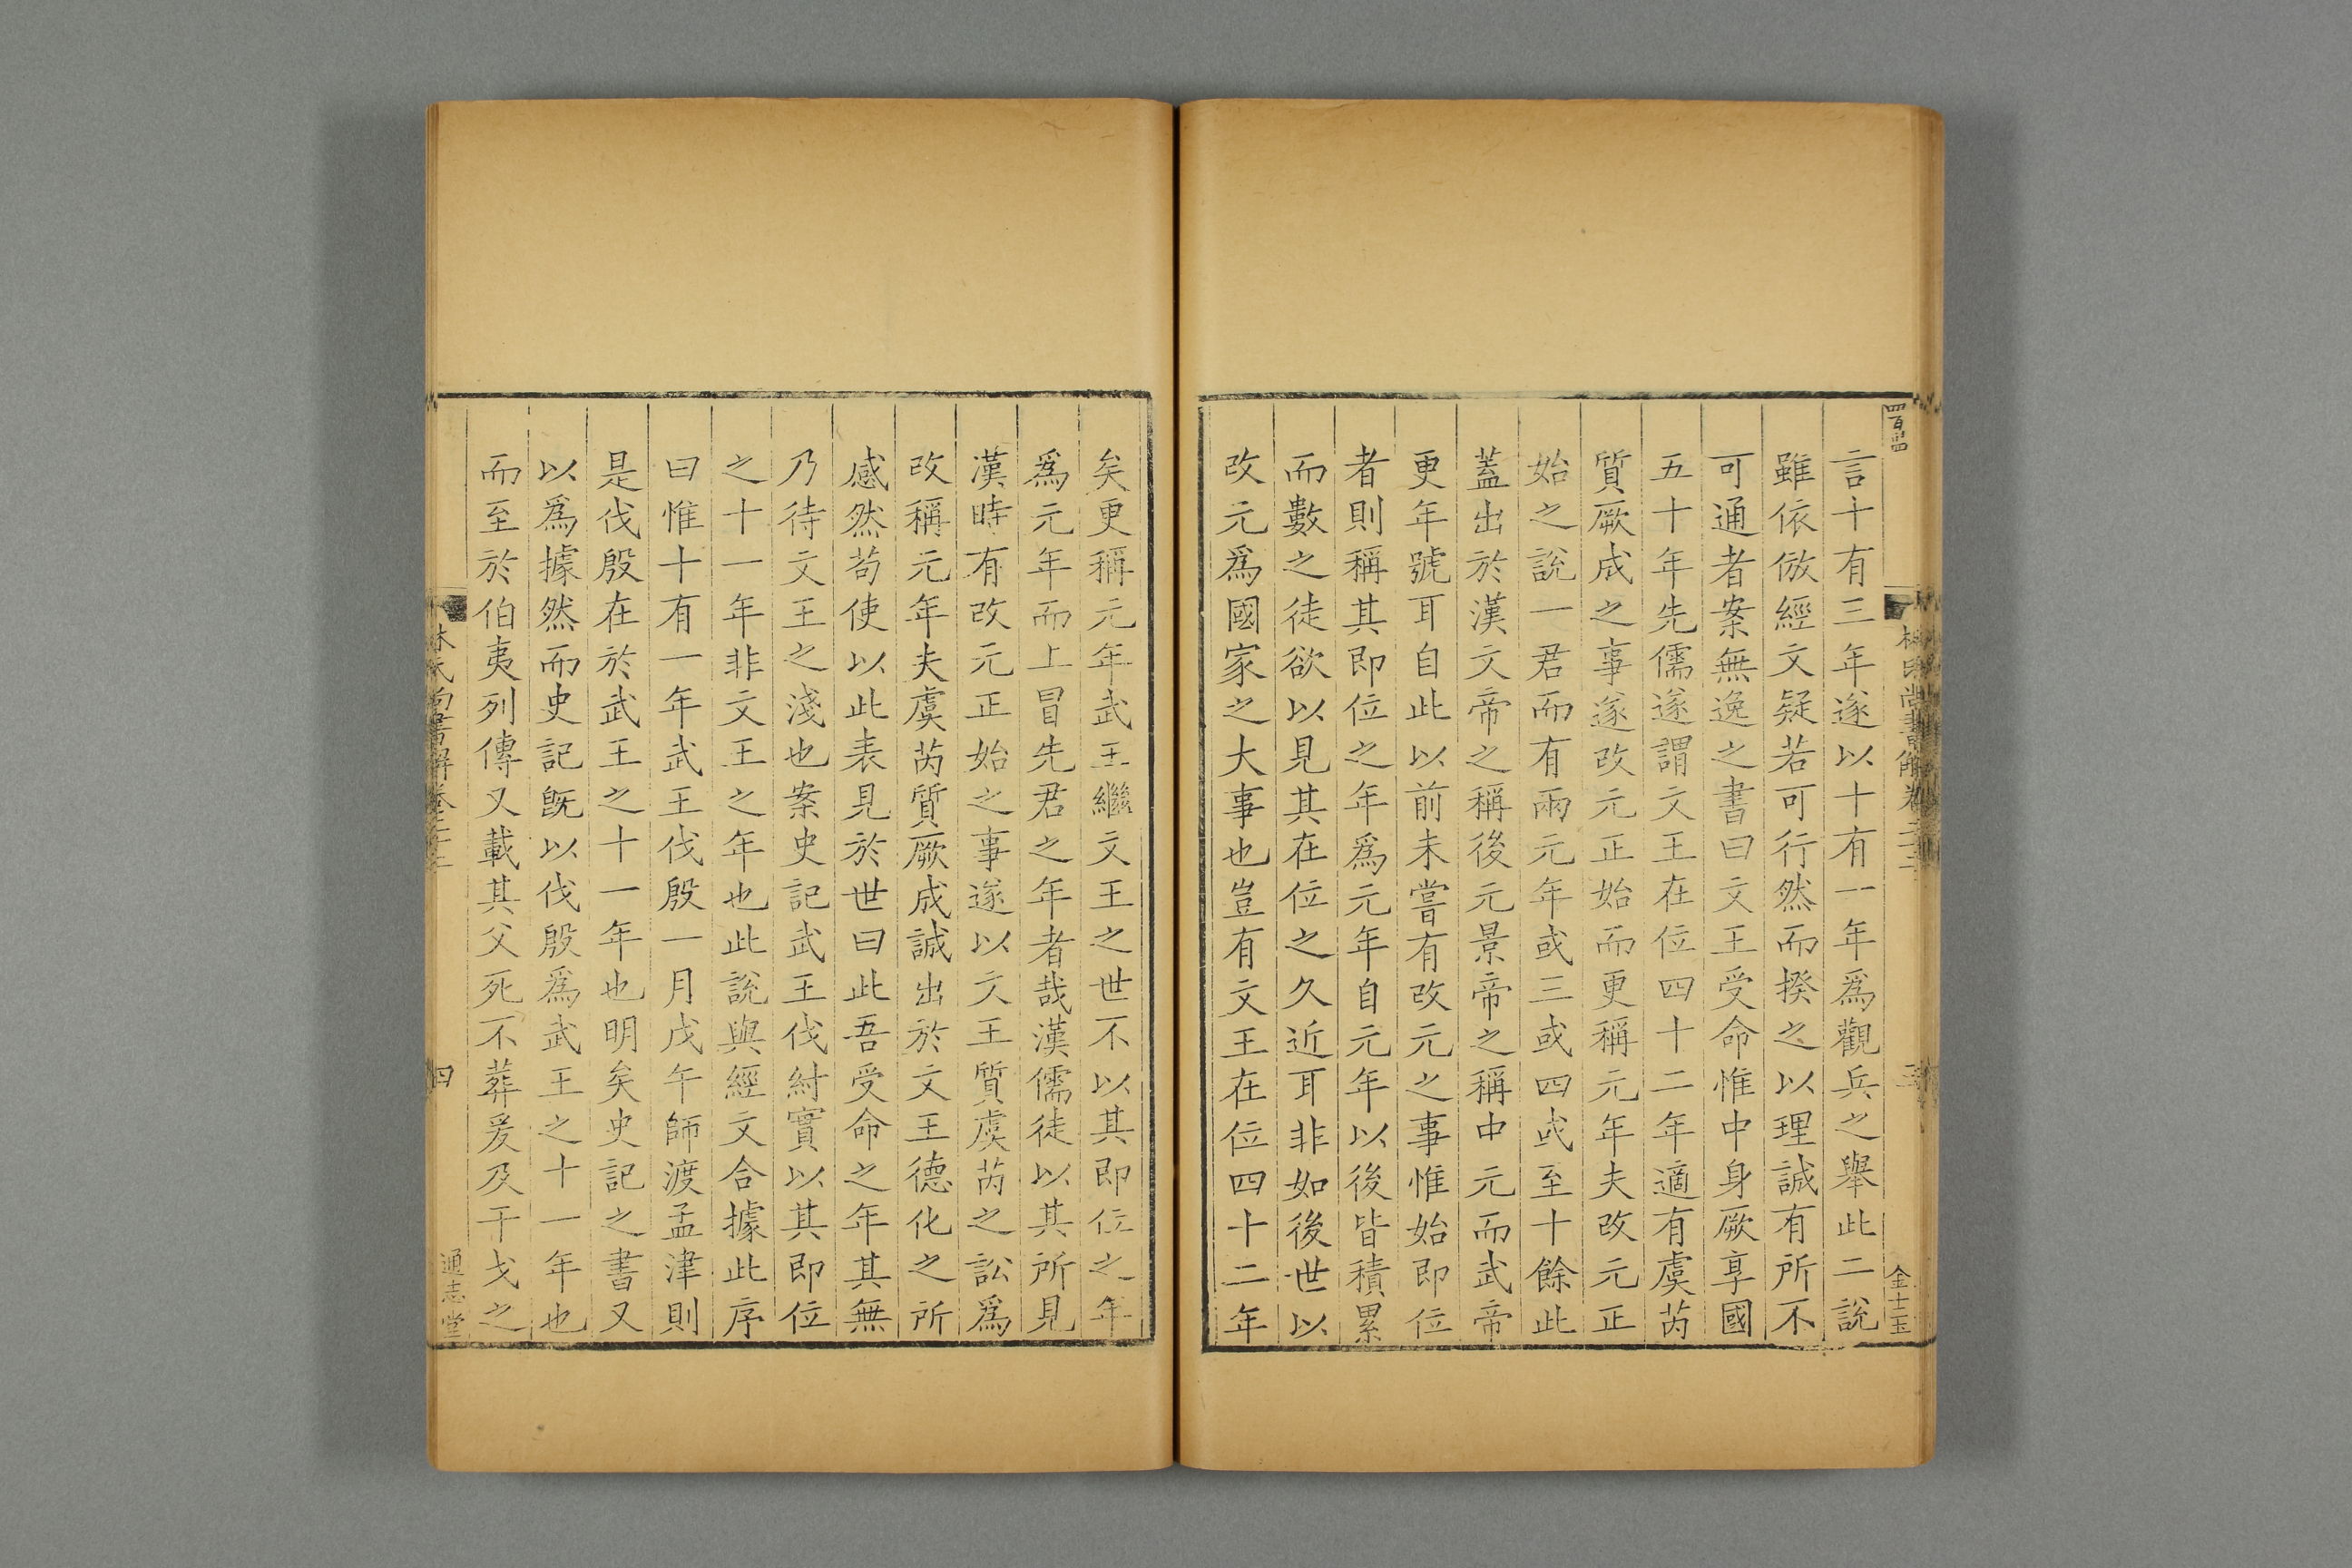 言十有三年遂以十有一年爲觀兵之舉此二說
雖依倣經文疑若可行然而揆之以理誠有所不
可通者案無逸之書曰文王受命惟中身厥享國
五十年先儒遂謂文王在位四十二年適有虞芮
質厥成之事遂改元正始而更稱元年夫改元正
始之說一君而有兩元年或三或四或至十餘此
蓋出於漢文帝之稱後元景帝之稱中元而武帝
更年號耳自此以前未嘗有改元之事惟始即位
者則稱其即位之年爲元年自元年以後皆積累
而數之徒欲以見其在位之久近耳非如後世以
改元爲國家之大事也豈有文王在位四十二年
矣更稱元年武王繼文王之世不以其即位之年
爲元年而上冒先君之年者哉漢儒徒以其所見
漢時有改元正始之事遂以文王質虞芮之訟爲
改稱元年夫虞芮質厥成誠出於文王德化之所
感然苟使以此表見於世曰此吾受命之年其無
乃待文王之淺也案史記武王伐紂實以其即位
之十一年非文王之年也此說與經文合據此序
曰惟十有一年武王伐殷一月戊午師渡孟津則
是伐殷在於武王之十一年也明矣史記之書又
以爲據然而史記既以伐殷爲武王之十一年也
而至於伯夷列傳又載其父死不葬爰及干戈之
林氏尚書解卷二十二
四
通志堂